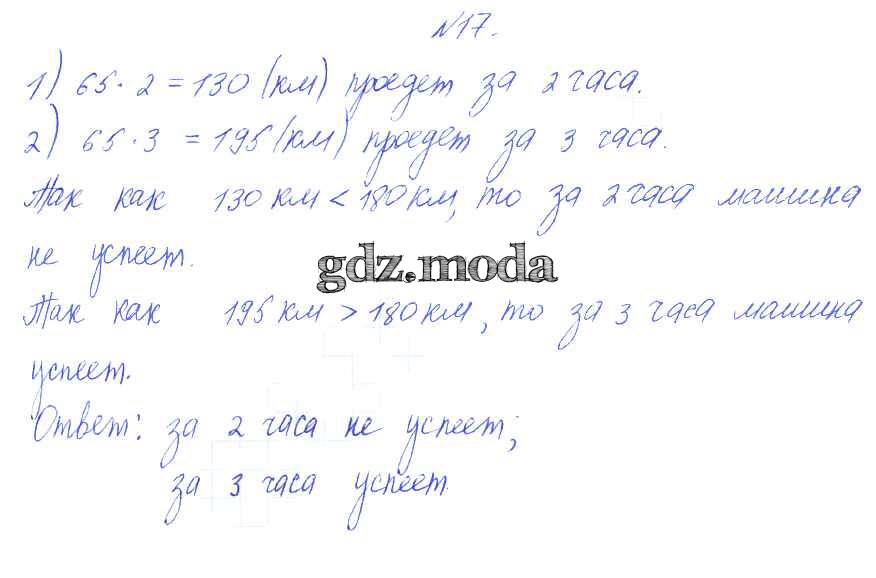 №17.
1) 65·2 = 130 (км) проедет за 2 часа.
2) 65·3 = 195 (км) проедет за 3 часа.
Так как 130 км < 180 км, то за 2 часа машина
не успеет.
gdz.moda
Так как 195 км > 180 км, то за 3 часа машина
успеет.
Ответ: за 2 часа не успеет;
за 3 часа успеет.